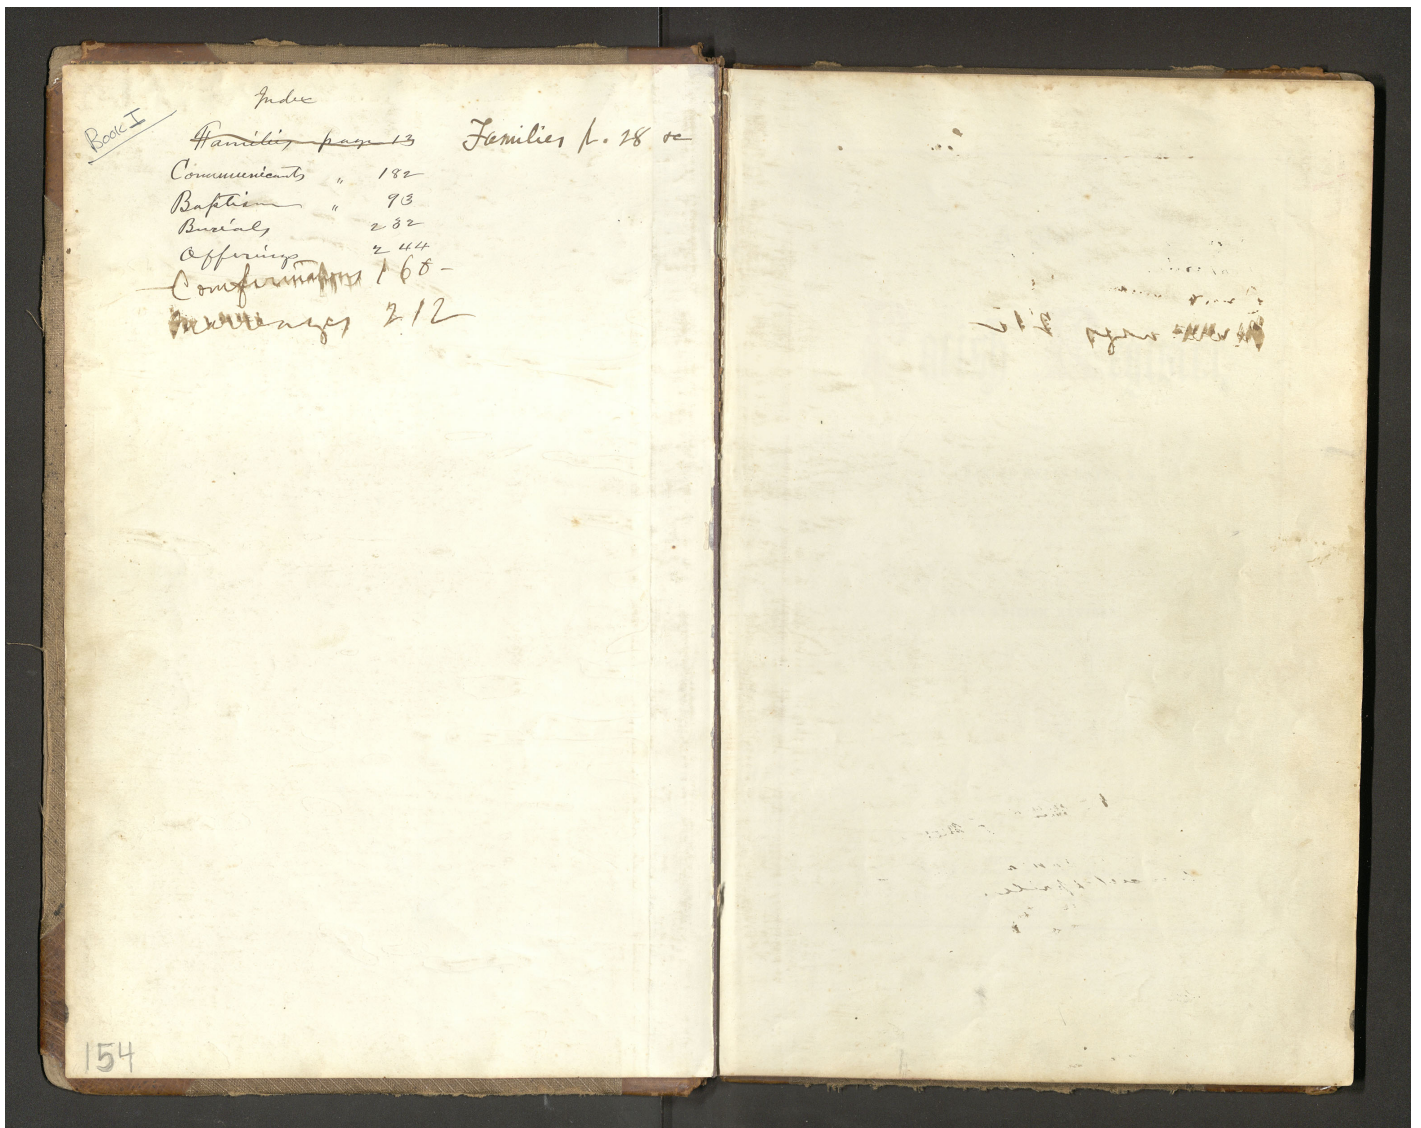 Book I
Index
Families page 13 Families p. 28 &c
Communicants " 182
Baptism " 93
Burials 232
Offerings 244
Confirmations 168-
Marriages 212
154